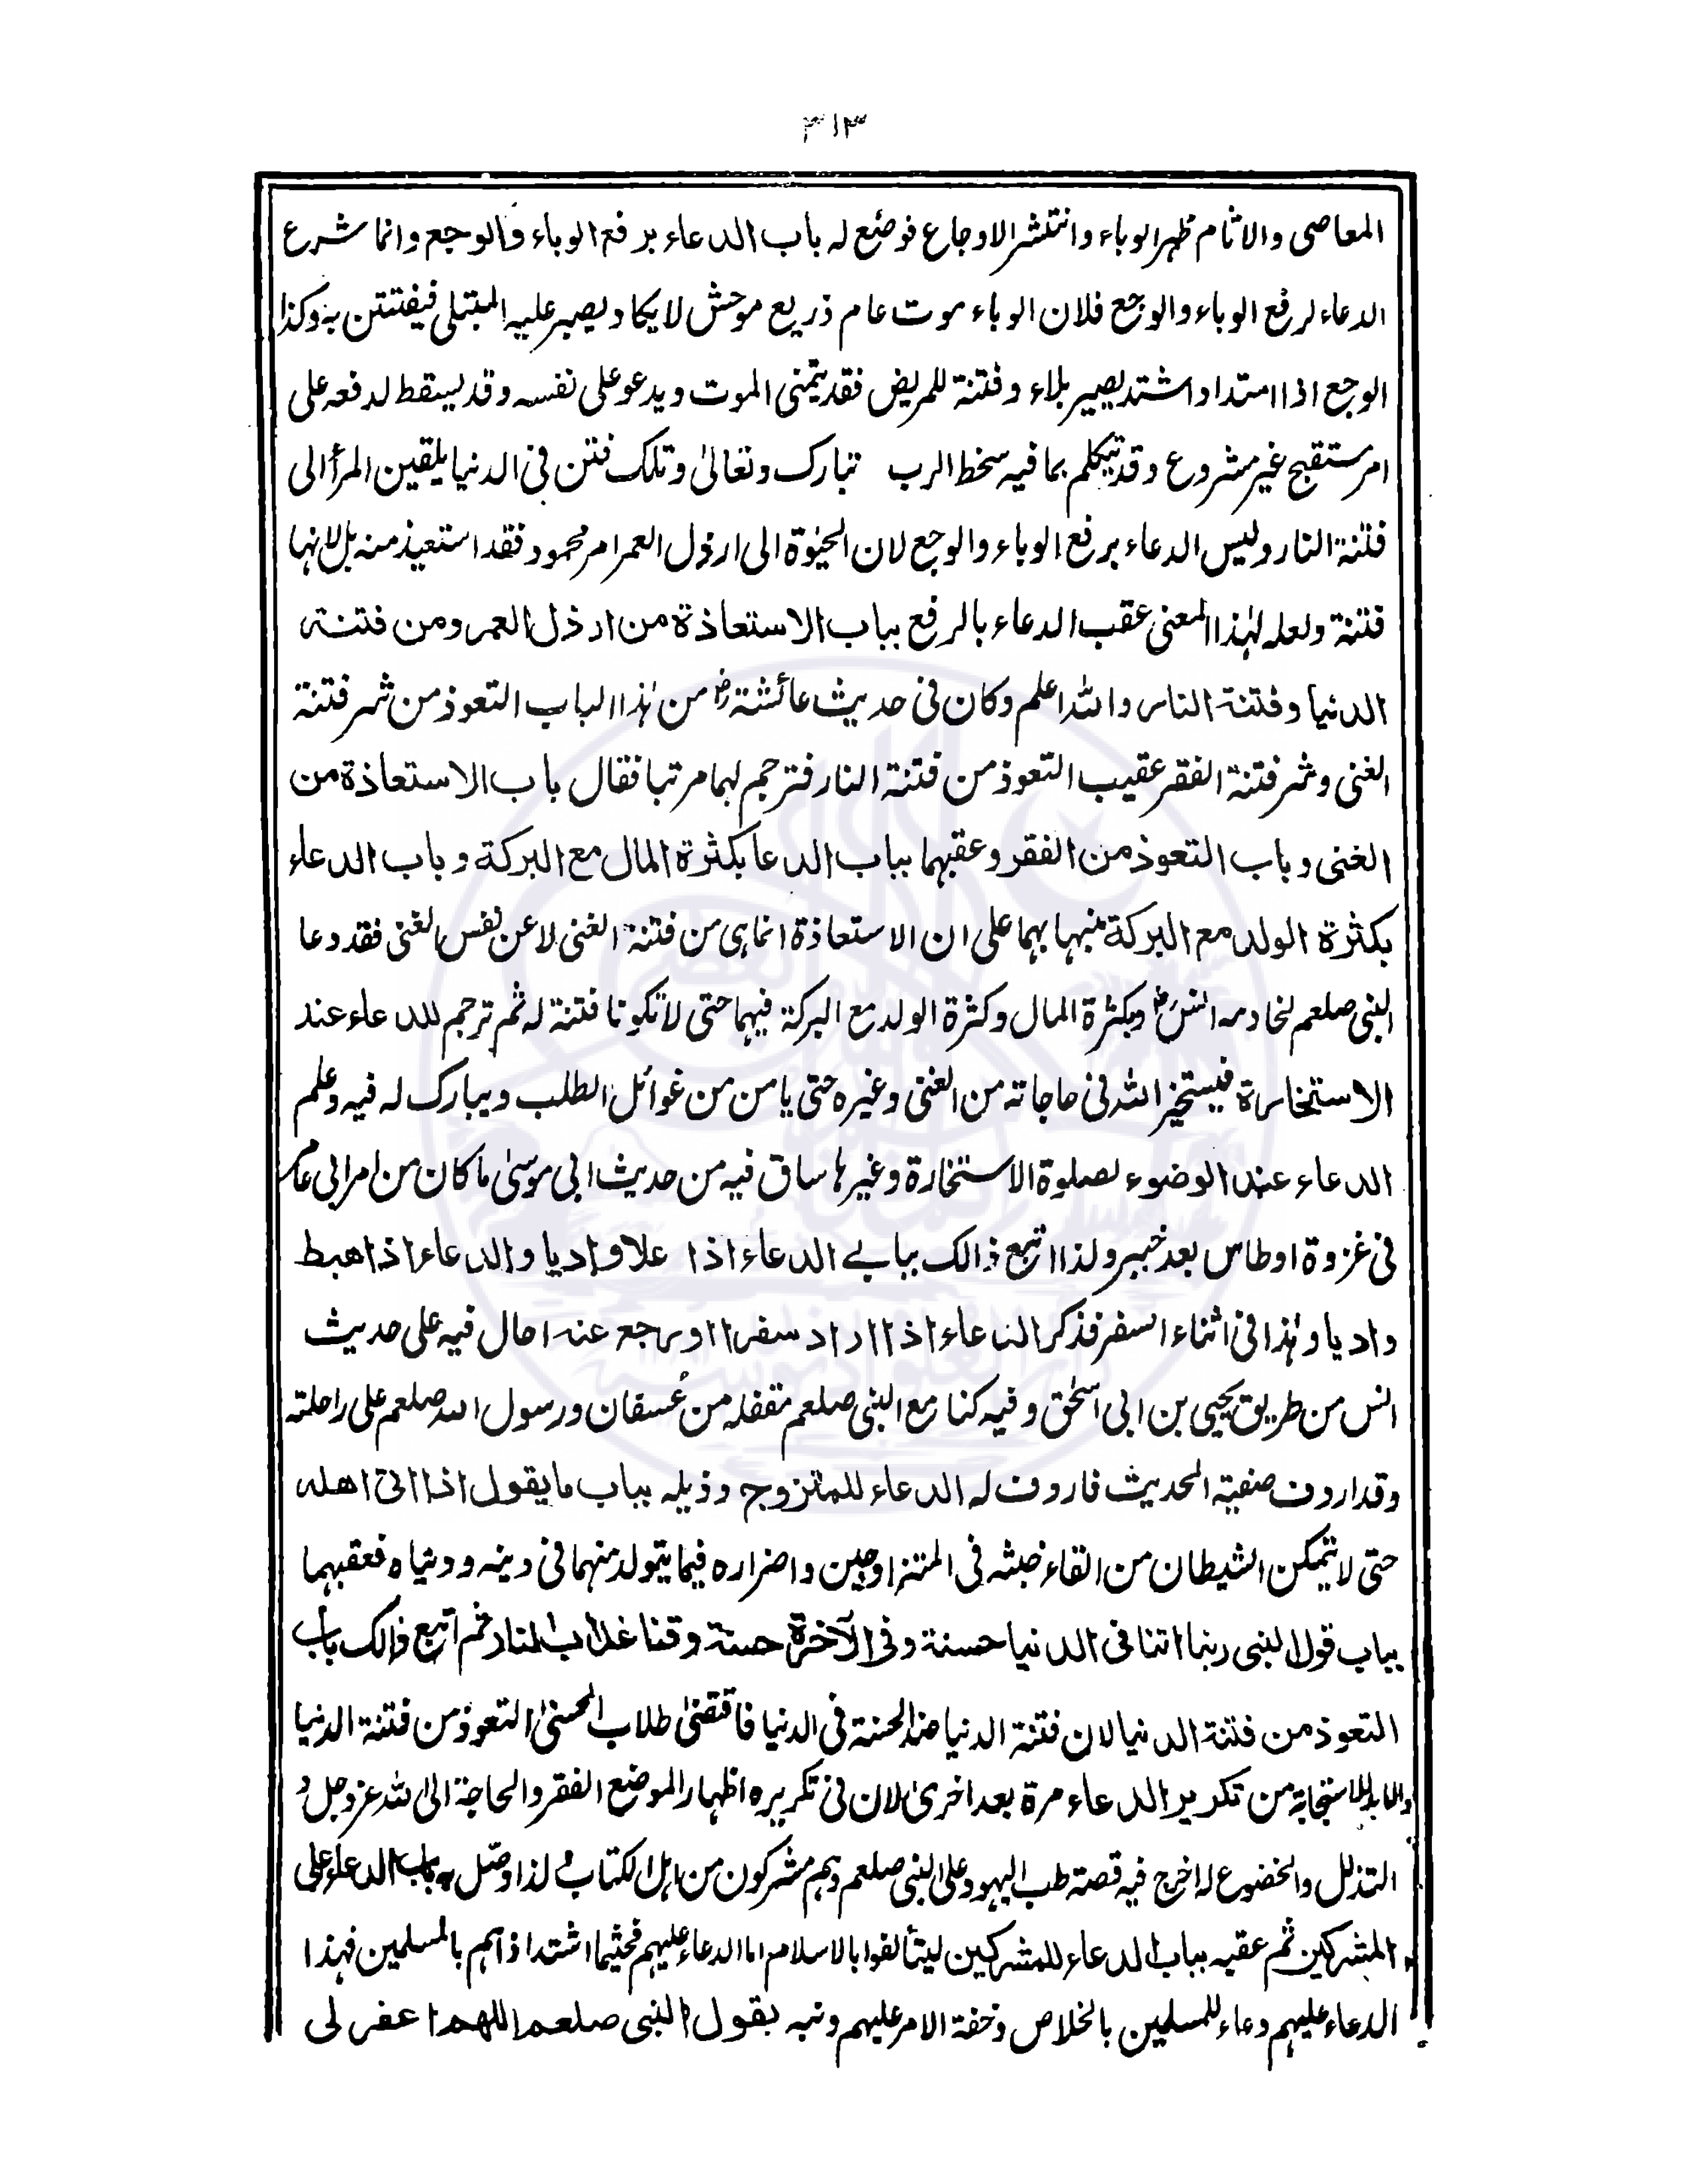 ٣١٣
المعاصى والاثام ظهر الوباء وانتشر الاوجاع فوضع له باب الدعاء برفع الوباء والوجع وانما شرع
الدعاء لرفع الوباء والوجع فلان الوباء موت عام ذريع موحش لا يكاد يصبر عليه المبتلى فيفتتن به وكذا
الوجع اذا امتد او اشتد يصير بلاء وفتنة للمريض فقد يتمنى الموت ويدعو على نفسه وقد يسقط لدفعه على
امر مستقبح غير مشروع وقد يتكلم بما فيه سخط الرب تبارك وتعالىٰ وتلك فتن فى الدنيا يلقين المرأ الى
فتنة النار وليس الدعاء برفع الوباء والوجع لان الحيٰوة الى ارذل العمر امر محمود فقد استعيذ منه بل لانها
فتنة ولعله لهٰذا المعنى عقب الدعاء بالرفع بباب الاستعاذة من ارذل العمر ومن فتنة
الدنيا وفتنة الناس والله اعلم وكان فى حديث عائشةؓ من هٰذا الباب التعوذ من شر فتنة
الغنى وشر فتنة الفقر عقيب التعوذ من فتنة النار فترجم لهما مرتبا فقال باب الاستعاذة من
الغنى وباب التعوذ من الفقر وعقبهما بباب الدعا بكثرة المال مع البركة وباب الدعاء
بكثرة الولد مع البركة منبها بهما على ان الاستعاذة انما هى من فتنة الغنى لا عن نفس الغنى فقد دعا
النبى صلعم لخادمه انسؓ بكثرة المال وكثرة الولد مع البركة فيهما حتى لا تكونا فتنة له ثم ترجم للدعاء عند
الاستخارة فيستخير الله فى حاجاته من الغنى وغيره حتى يامن من غوائل الطلب ويبارك له فيه وعلم
الدعاء عند الوضوء لصلوة الاستخارة وغيرها ساق فيه من حديث ابى موسىٰ ما كان من امر ابى عامر
فى غزوة اوطاس بعد خيبر ولذا اتبع ذالك ببابے الدعاء اذا علا واديا والدعاء اذا هبط
واديا وهٰذا فى اثناء السفر فذكر الدعاء اذا اراد سفرا او رجع عنه احال فيه على حديث
انس من طريق يحيى بن ابى اسحٰق وفيه كنا مع النبى صلعم مقفله من عُسفان ورسول الله صلعم على راحلته
وقد اردف صفية الحديث فاردف له الدعاء للمتزوج وذيله بباب ما يقول اذا اتى اهله
حتى لا يتمكن الشيطان من القاء خبثه فى المتزاوجين واضراره فيما يتولد منهما فى دينه ودنياه فعقبهما
بباب قول النبى ربنا اتنا فى الدنيا حسنة وفى الآخرة حسنة وقنا عذاب النار ثم اتبع ذالك باب
التعوذ من فتنة الدنيا لان فتنة الدنيا ضد الحسنة فى الدنيا فاقتضىٰ طلاب الحسنىٰ التعوذ من فتنة الدنيا
من تكرير الدعاء مرة بعد اخرىٰ لان فى تكريره اظهارا لموضع الفقر والحاجة الى الله عز وجل و
التذلل والخضوع له اخرج فيه قصة طب اليهود على النبى صلعم وهم مشركون من اهل الكتاب لذا وصل به باب الدعاء على
المشركين ثم عقبه بباب الدعاء للمشركين ليتألفوا بالاسلام واما الدعاء عليهم فحيثما اشتد اذاهم بالمسلمين فهذا
الدعاء عليهم دعاء للمسلمين بالخلاص وخفة الامر عليهم ونبه بقول النبى صلعم اللهم اغفر لى